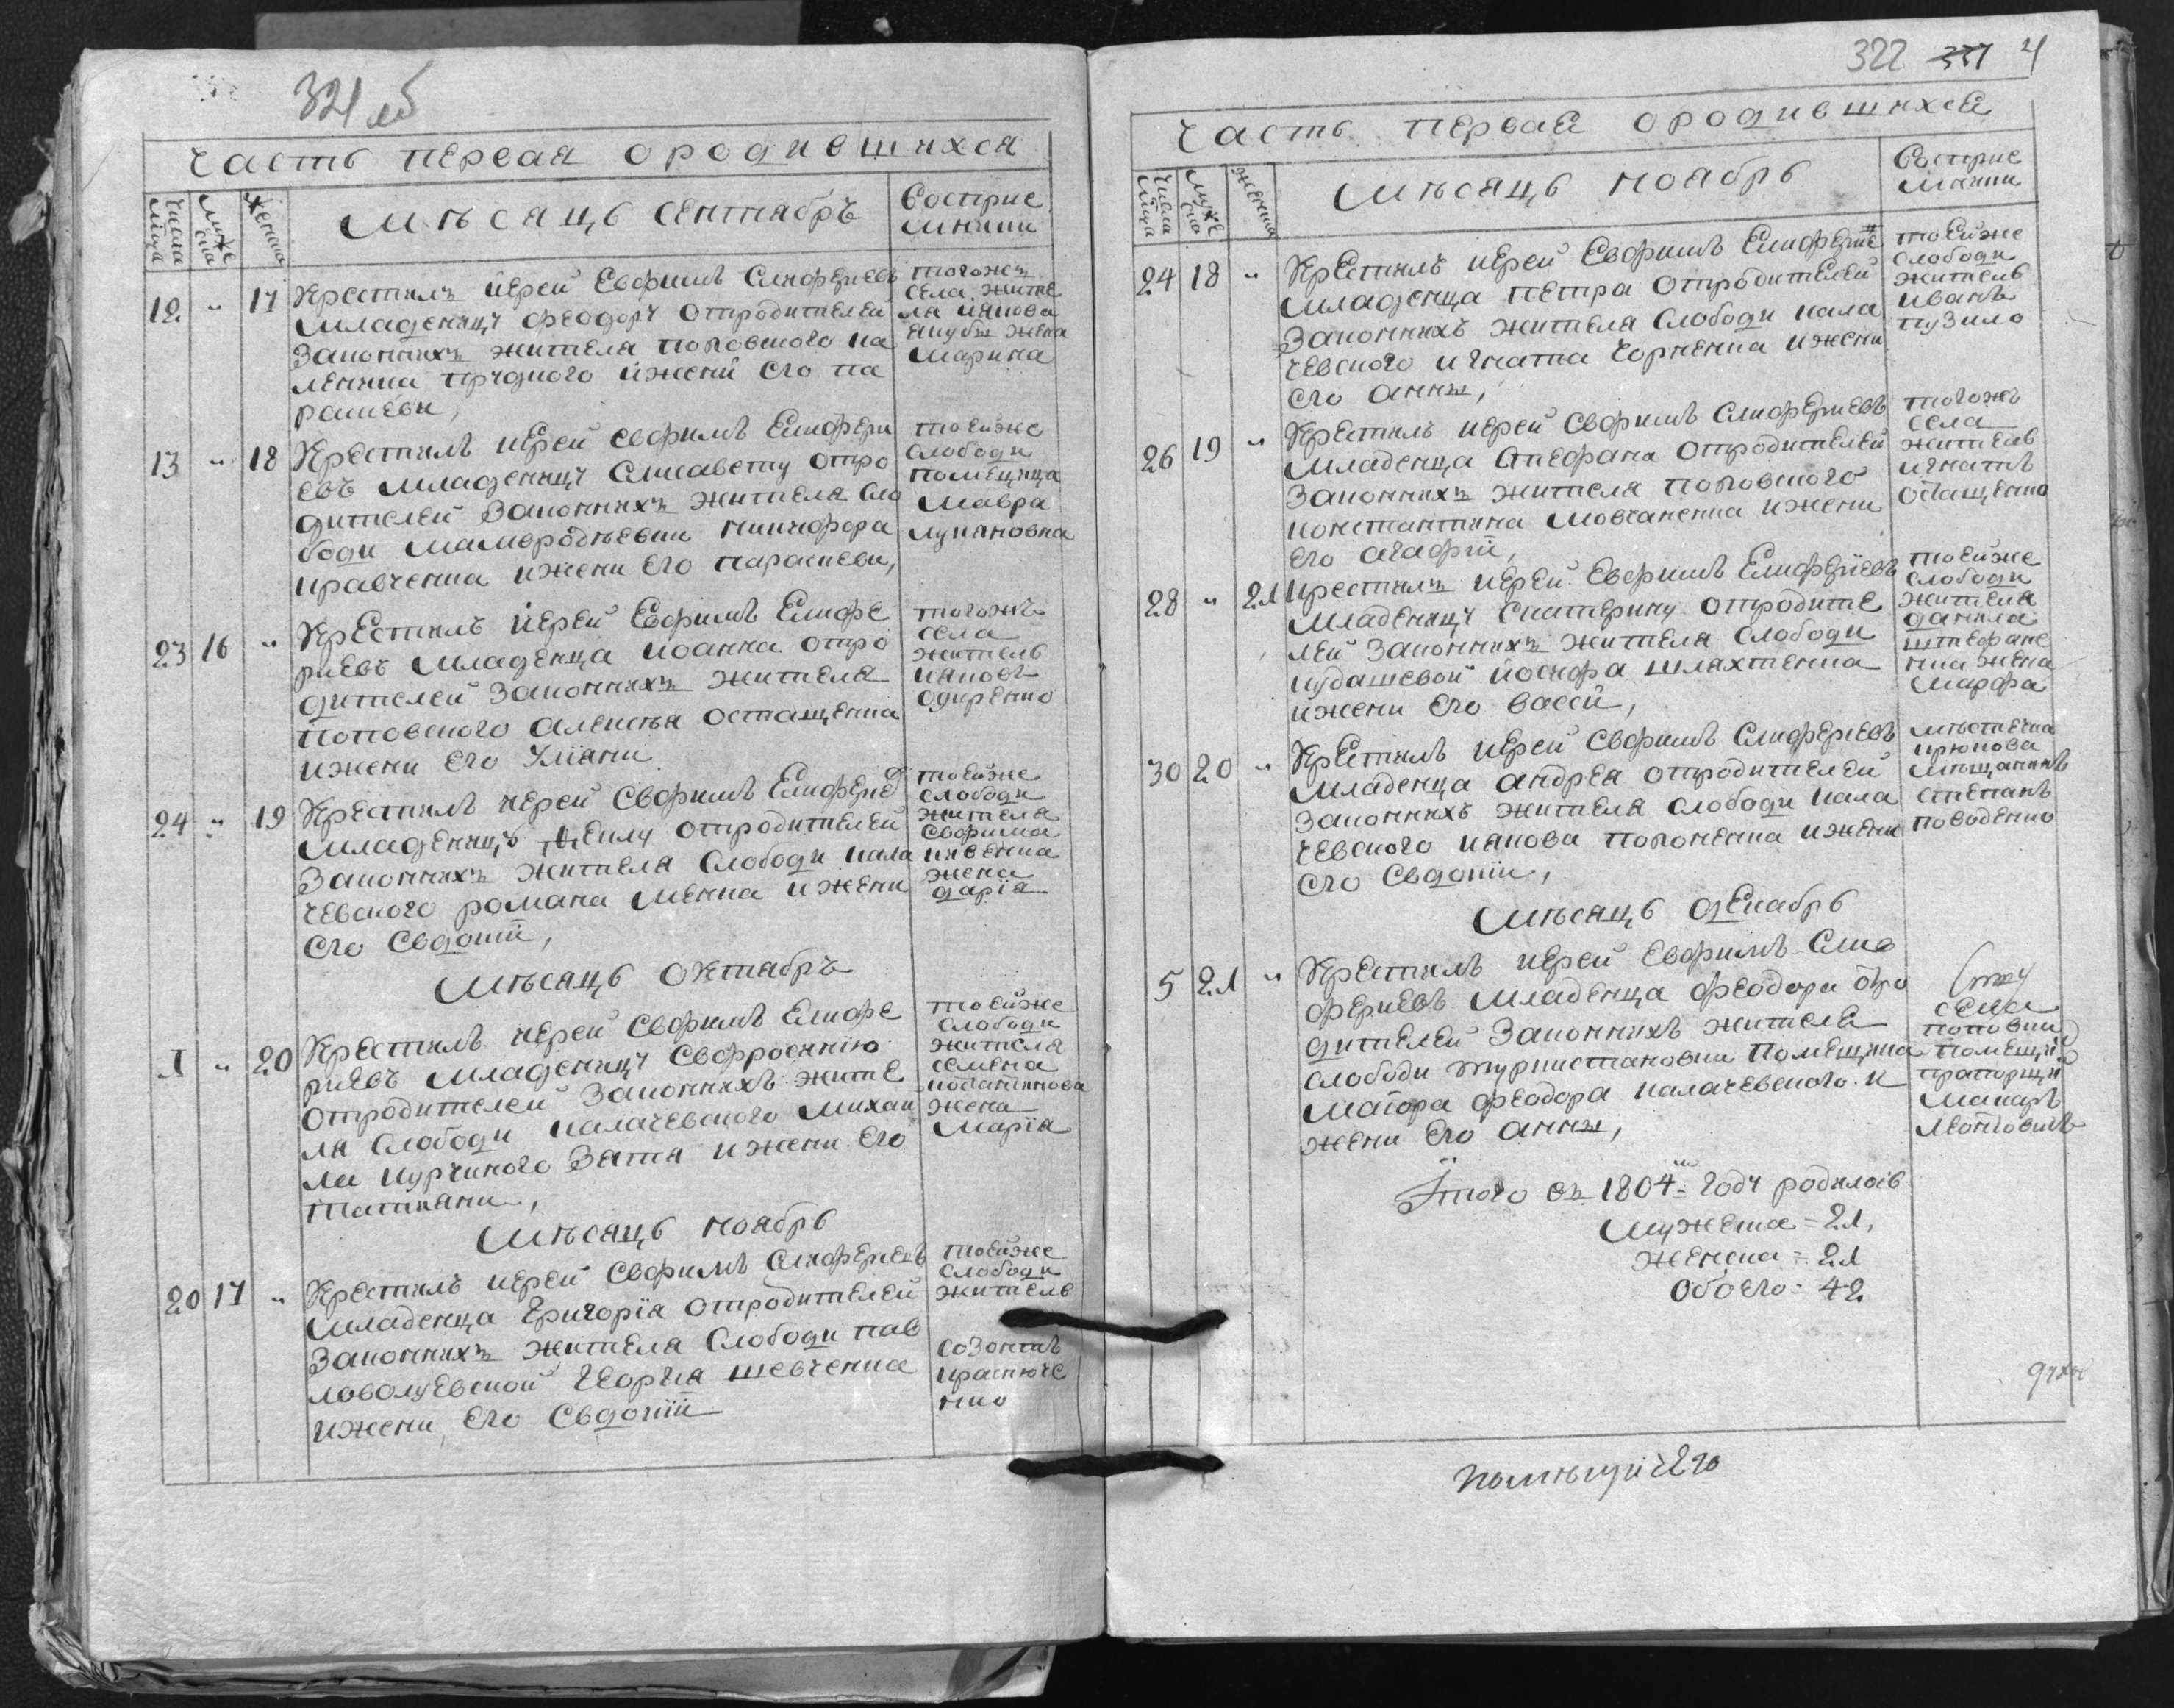 321 об
Часть первая ородившихся
Числа мца
муже ска
женска
мѣсяцъ сентябрь
Восприе мники
12 " 17
Крестилъ иерей Евфимъ Елиферіевъ
младеницу феодору отродителей
законныхъ жителя поповского ка
ленника трудного ижени его па
раскеви,
тогожъ
села жите
ля иякова
якубы жена
марина
13 " 18
Крестилъ иерей евфимъ Елифери
евъ младеницу Елисавету отро
дителей законныхъ жителя сло
боди мамеродѣевки никифора
кравченка ижени его параскеви,
тоейже
слободи
помещица
мавра
лукяновна
23 16 "
Крестилъ иерей Евфимъ Елифе
риевъ младенца иоанна отро
дителей законныхъ жителя
поповского алексѣя осташенка
ижени его Уліяни
тогожъ
села
житель
ияковъ
одиренко
24 " 19
Крестилъ иерей Евфимъ Елифериев
младеницу феклу отродителей
законныхъ жителя слободи кала
чевского романа менка ижени
его Евдокіи,
тоейже
слободи
жителя
евфима
жена
дарія
мѣсяцъ октябрь
1 " 20
Крестилъ иерей Евфимъ Елифе
риевъ младеницу Евфросинію
отродителей законныхъ жите
ля слободи калачевского михаи
ла курчиного зятя ижени его
татияни,
тоейже
слободи
жителя
семена
жена
марія
мѣсяцъ ноябрь
20 17 "
Крестилъ иерей Евфимъ Елифериевъ
младенца Григорія отродителей
законныхъ жителя слободи пав
ловолуевской Георгія шевченка
ижени его Евдокіи
тоейже
слободи
житель
созонтъ
краснюче
нко
322 321 4
Часть первая ородившихся
Числа мца
муже ска
женска
мѣсяцъ ноябрь
Восприе мники
24 18 "
Крестилъ иерей Евфимъ Елифериев
младенца петра отродителей
законныхъ жителя слободи кала
чевского игната Чорненка ижени
его анны,
тоейже
слободи
житель
иванъ
пузило
26 19 "
Крестилъ иерей Евфимъ Елифериевъ
младенца стефана отродителей
законныхъ жителя поповского
константина мовчаненка ижени
его агафіи,
тогожъ
села
житель
игнатъ
осташенко
28 " 21
крестилъ иерей Евфимъ Елиферіевъ
младеницу екатерину отродите
лей законныхъ жителя слободи
кудашевой иосифа шляхтенка
ижени его васси,
тоейже
слободи
жителя
данила
штефане
нка жена
марфа
30 20 "
Крестилъ иерей Евфимъ Елифериевъ
младенца андрея отродителей
законныхъ жителя слободи кала
чевского иякова попоненка ижени
его Евдокіи,
мѣстечка
крюкова
мѣщанинъ
степанъ
поводенко
мѣсяцъ декабрь
5 21 "
Крестилъ иерей Евфимъ Ели
фериевъ младенца феодора отро
дителей законныхъ жителя
слободи турпистановки помещика
маіора феодора калачевского и
жени его анны,
села
поповки
помещик
прапорщик
макаръ
Леонтовичъ
Итого въ 1804м году родилось
мужеска = 21,
женска = 21
обоего = 42